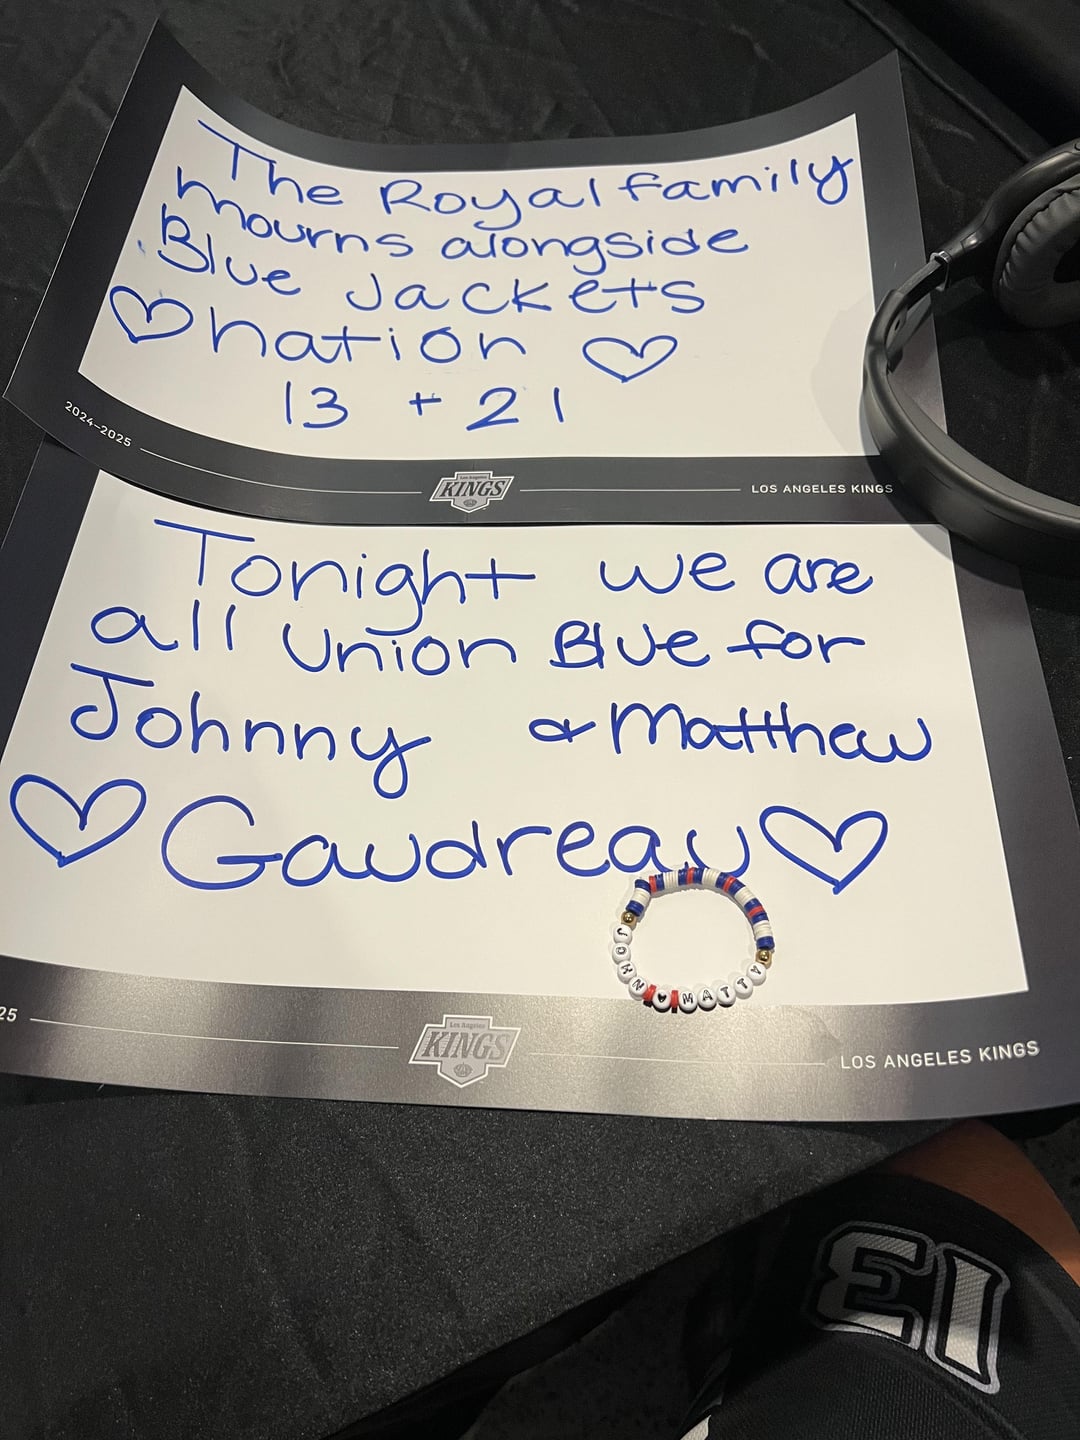 The Royal family
mourns alongside
Blue Jackets
nation
13 + 21
2024–2025
Los Angeles
KINGS
LOS ANGELES KINGS
Tonight we are
all Union Blue for
Johnny & Matthew
Gaudreau
JOHN MATTY
25
Los Angeles
KINGS
LOS ANGELES KINGS
13